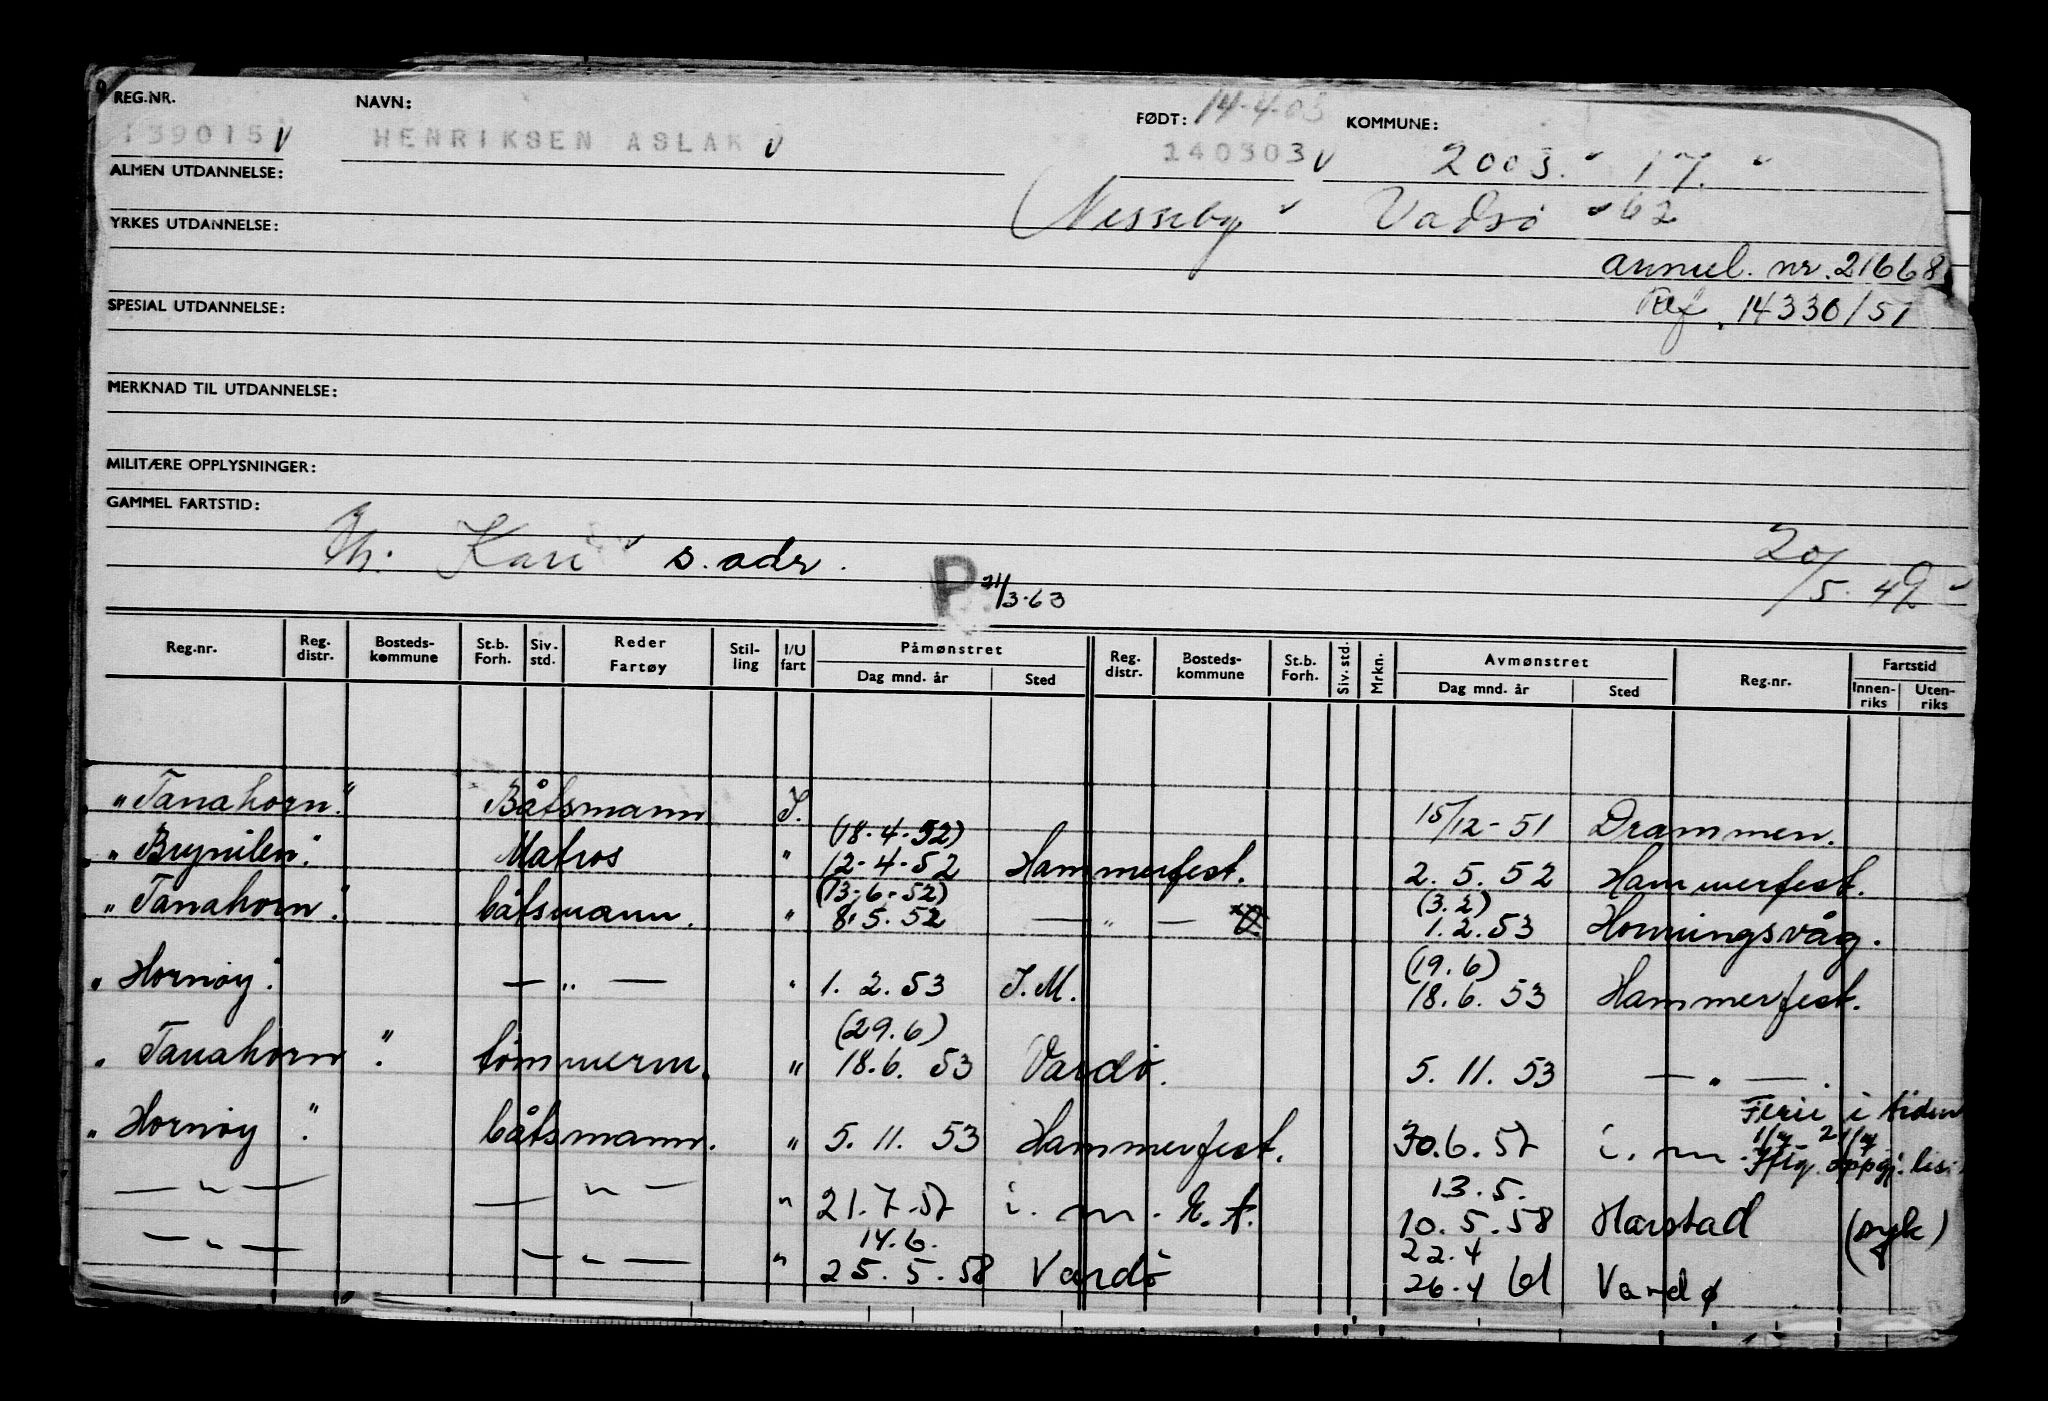 REG.NR. NAVN: FØDT: 14-4-03 KOMMUNE:
139015 v HENRIKSEN ASLAK v 140303 v 2003. 17.
ALMEN UTDANNELSE:
Nesseby Vadsø 62
YRKES UTDANNELSE:
annul. nr. 21668
SPESIAL UTDANNELSE: Ref. 14330/51
MERKNAD TIL UTDANNELSE:
MILITÆRE OPPLYSNINGER:
GAMMEL FARTSTID:
Kari s. adr. 20/5. 49
P 21/3-63
Reg.nr. Reg. distr. Bosteds- kommune St.b. Forh. Siv. std. Reder Fartøy Stil- ling I/U fart Påmønstret Dag mnd. år Sted Reg. distr. Bosteds- kommune St.b. Forh. Siv. std. Mrkn. Avmønstret Dag mnd. år Sted Reg.nr. Fartstid Innen- riks Uten- riks
"Tanahorn" Båtsmann I. 15/12-51 Drammen.
(18-4-52)
"Brynilen" Matros " 12-4-52 Hammerfest. 2. 5. 52 Hammerfest.
(13-6-52) (3.2)
"Tanahorn" båtsmann. " 8. 5. 52 — " — 1. 2. 53 Honningsvåg.
(19.6)
"Hornøy" — " — " 1. 2. 53 I.M. 18. 6. 53 Hammerfest.
(29.6)
"Tanahorn" tømmerm. " 18. 6. 53 Vardø. 5. 11. 53 — " —.
Ferie i tiden
"Hornøy" båtsmann. " 5. 11. 53 Hammerfest. 30. 6. 57 i. m.
13. 5.
— " — — " — " 21. 7. 57 i. m. 10. 5. 58 Harstad (syk)
14. 6. 22. 4
— " — — " — " 25. 5. 58 Vardø 26. 4 61 Vardø